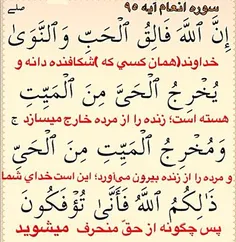 سوره انعام آیه ۹۵
صلے
إِنَّ ٱللَّهَ فَالِقُ ٱلْحَبِّ وَٱلنَّوَىٰ
خداوند(همان کسي که )شکافنده دانه و
يُخْرِجُ ٱلْحَيَّ مِنَ ٱلْمَيِّتِ
هسته است؛ زنده را از مرده خارج میسازد ج
وَمُخْرِجُ ٱلْمَيِّتِ مِنَ ٱلْحَيِّ
و مرده را از زنده بیرون می‌آورد؛ این است خدای شما
ذَٰلِكُمُ ٱللَّهُ فَأَنَّىٰ تُؤْفَكُونَ
پس چگونه از حقّ منحرف میشوید